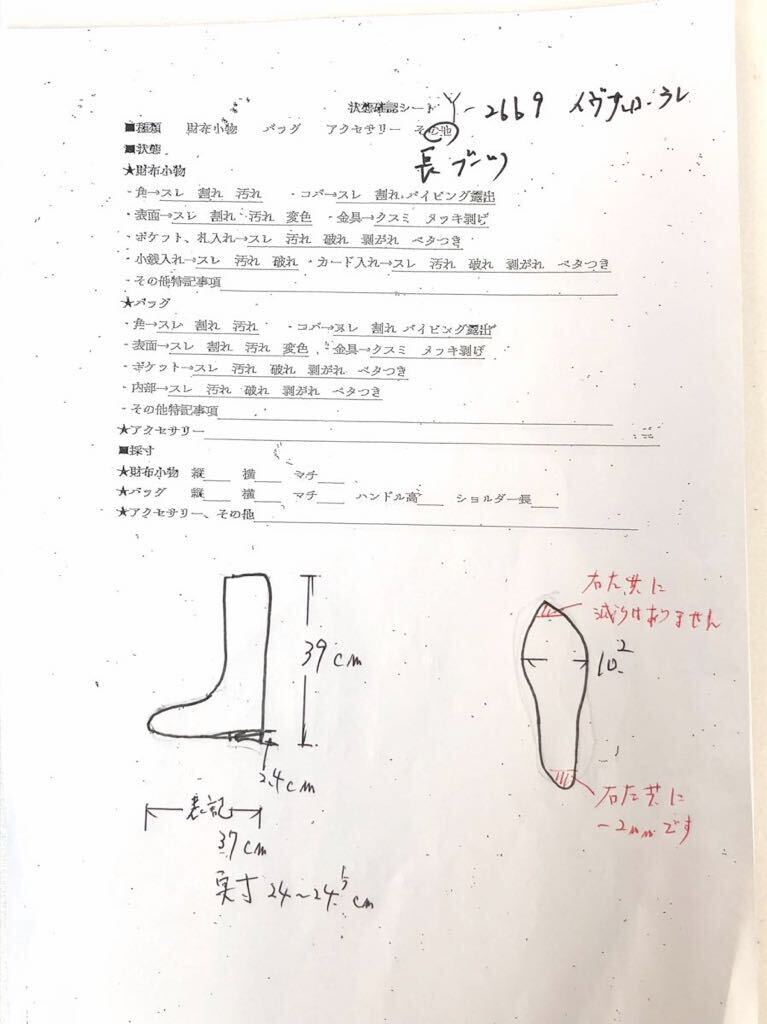 状態確認シート Y-2669 イヴサンローラン
■種類 財布小物 バッグ アクセサリー その他
長ブーツ
■状態
★財布小物
・角→スレ 割れ 汚れ ・コバ→スレ 割れ パイピング露出
・表面→スレ 割れ 汚れ 変色 ・金具→クスミ メッキ剥げ
・ポケット、札入れ→スレ 汚れ 破れ 剥がれ ベタつき
・小銭入れ→スレ 汚れ 破れ ・カード入れ→スレ 汚れ 破れ 剥がれ ベタつき
・その他特記事項
★バッグ
・角→スレ 割れ 汚れ ・コバ→スレ 割れ パイピング露出
・表面→スレ 割れ 汚れ 変色 ・金具→クスミ メッキ剥げ
・ポケット→スレ 汚れ 破れ 剥がれ ベタつき
・内部→スレ 汚れ 破れ 剥がれ ベタつき
・その他特記事項
★アクセサリー
■採寸
★財布小物 縦 横 マチ
★バッグ 縦 横 マチ ハンドル高 ショルダー長
★アクセサリー、その他
39cm
2.4cm
表記
37cm
実寸 24～24.5cm
右左共に
減りはありません
10.2
右左共に
-2mmです